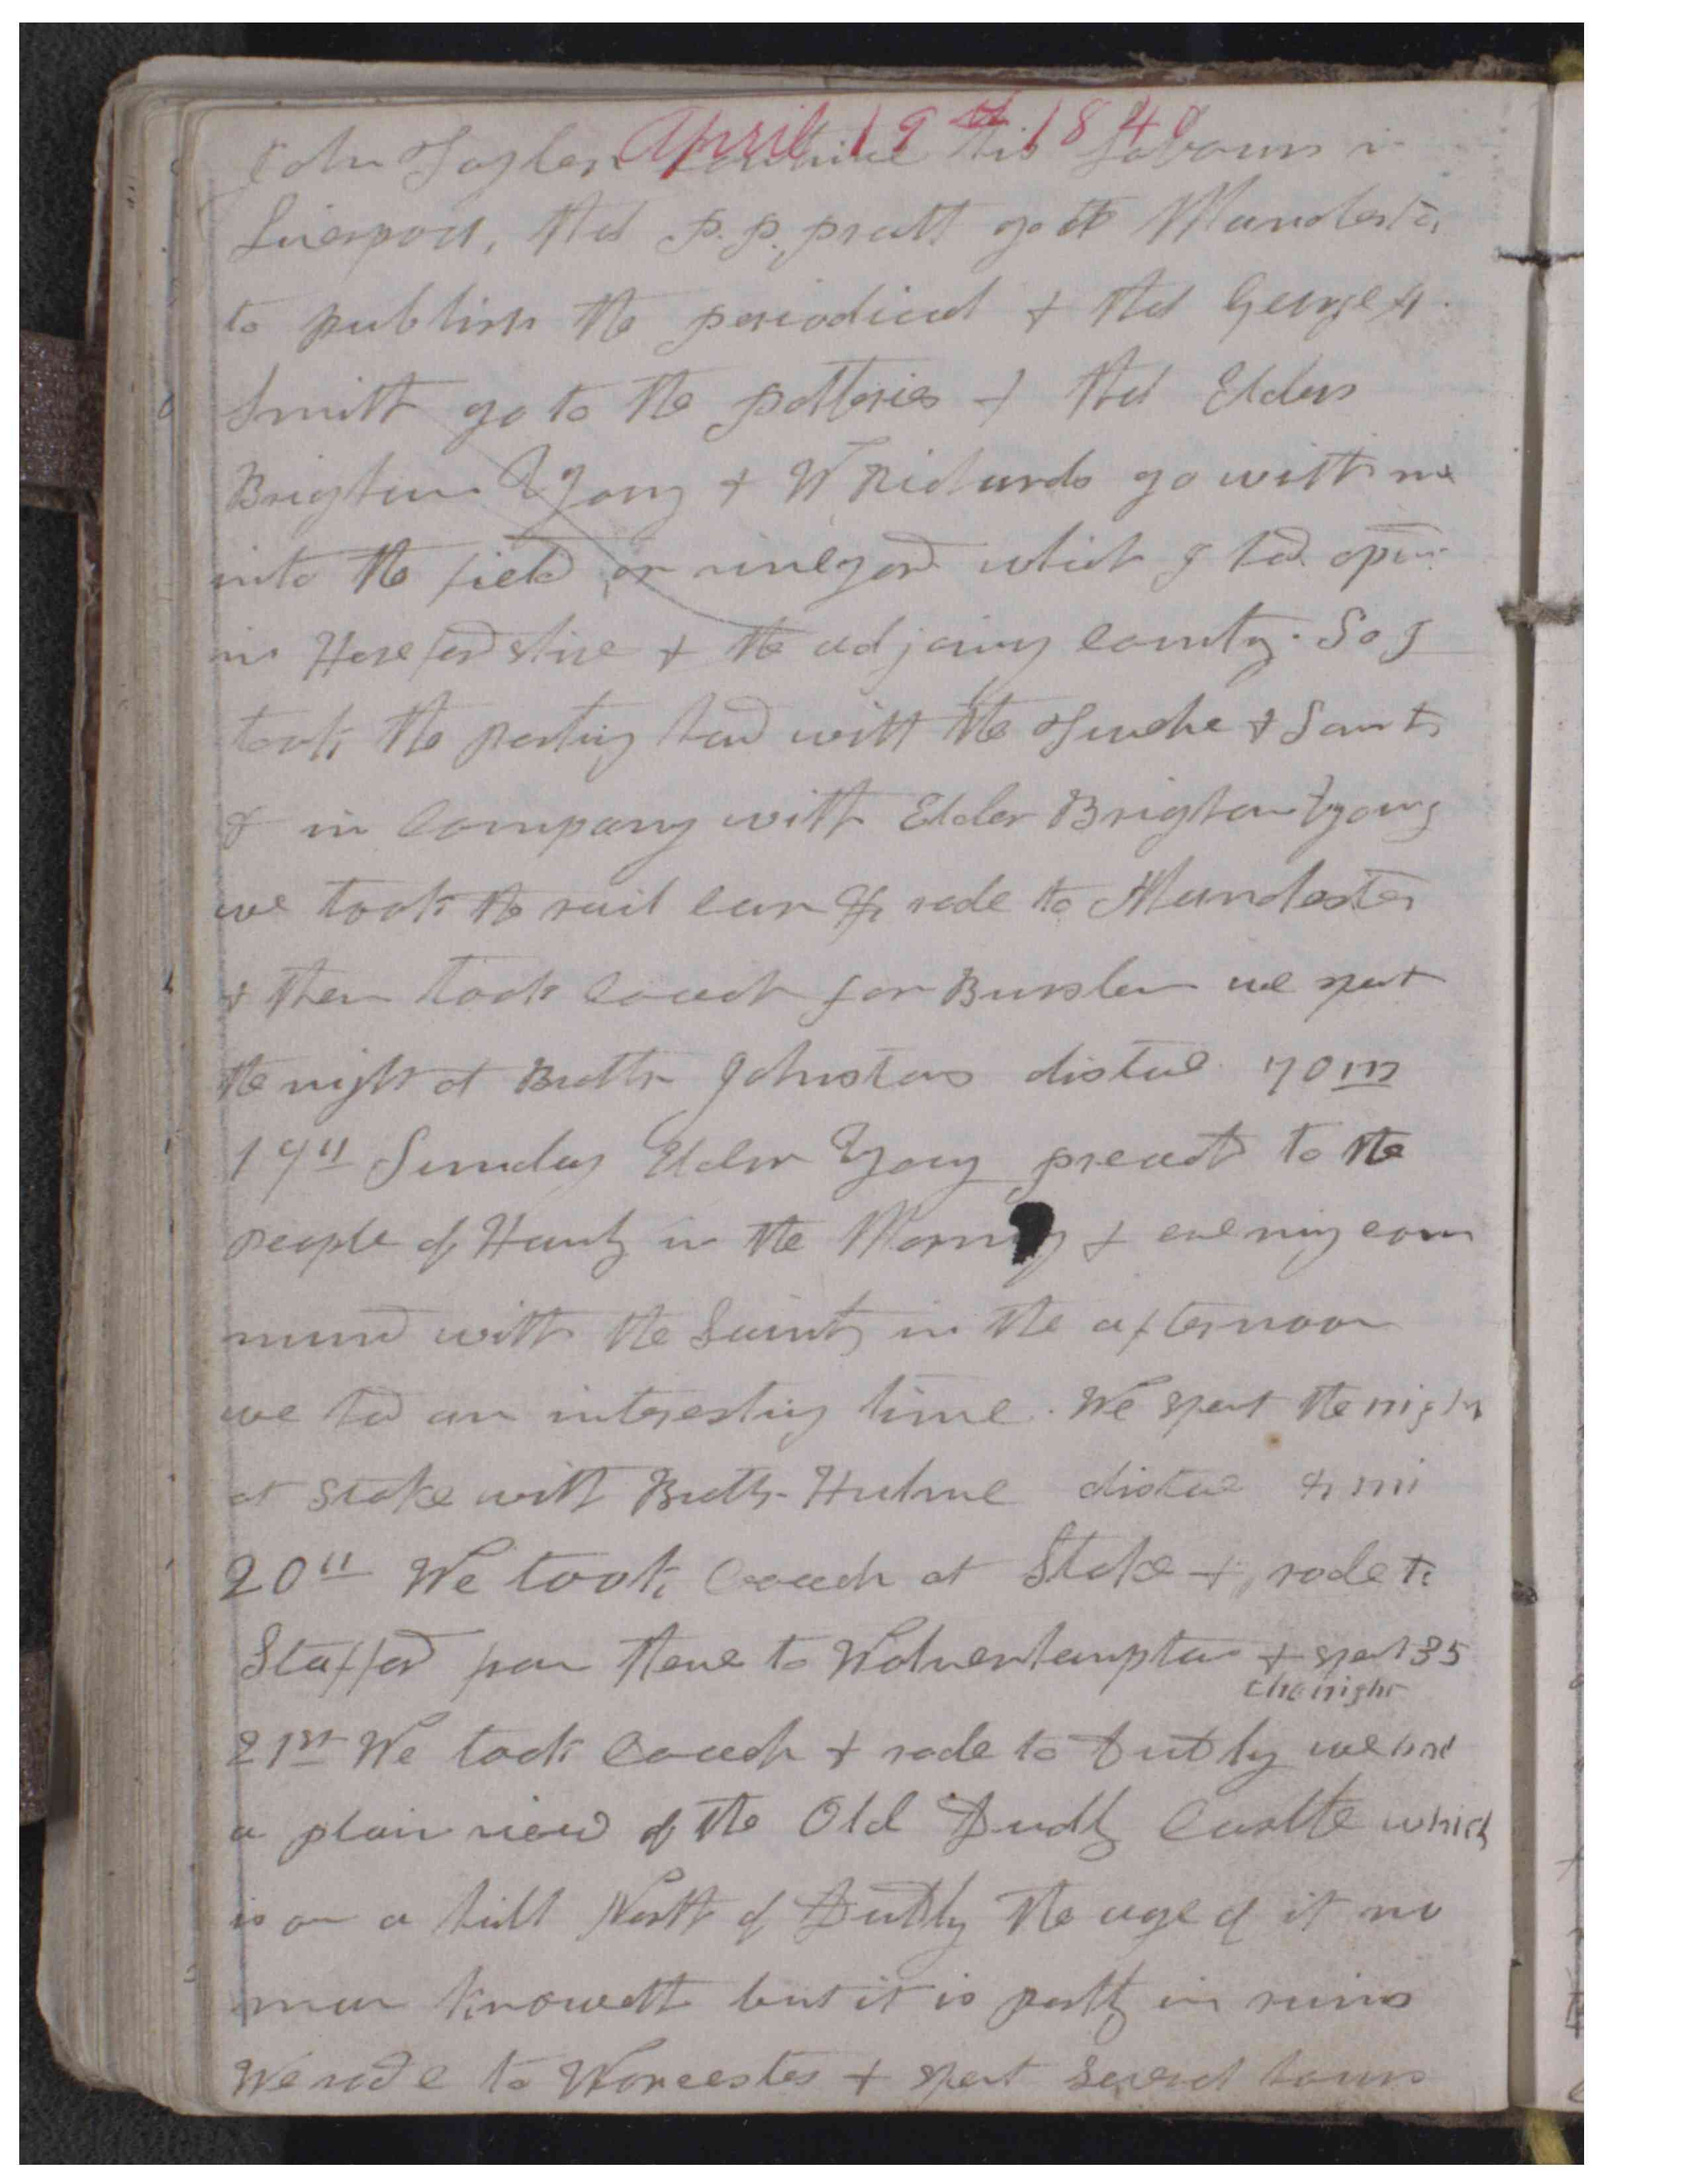 April 19th 1840
John Taylor continue his Labours in
Liverpool, that P. P. Pratt go to Manchester
to publish the periodical & that George A.
Smith go to the potteries & that Elders
Brigham Young & W Richards go with me
into the field or vineyard which I had open
in Herefordshire & the adjoining county. So I
took the parting hand with the Twelve & Saints
& in company with Elder Brigham Young
we took the rail car & rode to Manchester
& then took coach for Burslem we spent
the night at Brother Johnstons distance 70 m
19th Sunday Elder Young preach to the
people of Hanly in the Morning & evening com
muned with the Saints in the afternoon
we had an interesting time. We spent the night
at Stoke with Brother Hulme distance 4 mi
20th We took coach at Stoke & rode to
Stafford from thence to Wolverhampton & spent 35
the night
21st We took coach & rode to Dudly we had
a plain view of the Old Dudly Castle which
is on a hill North of Dudly the age of it no
man knoweth but it is partly in ruins
We rode to Worcester & spent several hours